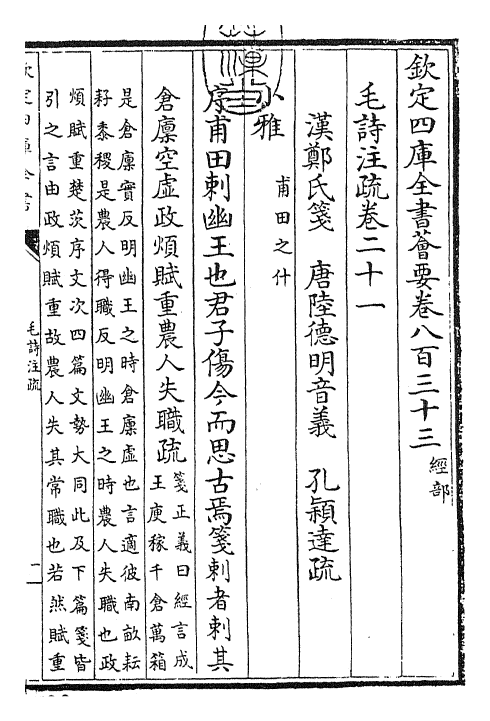 欽定四庫全書薈要卷八百三十三 經部
毛詩注疏卷二十一
漢鄭氏箋 唐陸德明音義 孔穎達疏
小雅 甫田之什
序甫田刺幽王也君子傷今而思古焉箋刺者刺其
倉廩空虛政煩賦重農人失職疏箋正義曰經言成
王庾稼千倉萬箱
是倉廩實反明幽王之時倉廩虛也言適彼南畝耘
耔黍稷是農人得職反明幽王之時農人失職也政
煩賦重楚茨序文次四篇文勢大同此及下篇箋皆
引之言由政煩賦重故農人失其常職也若然賦重
欽定四庫全書
毛詩注疏
一